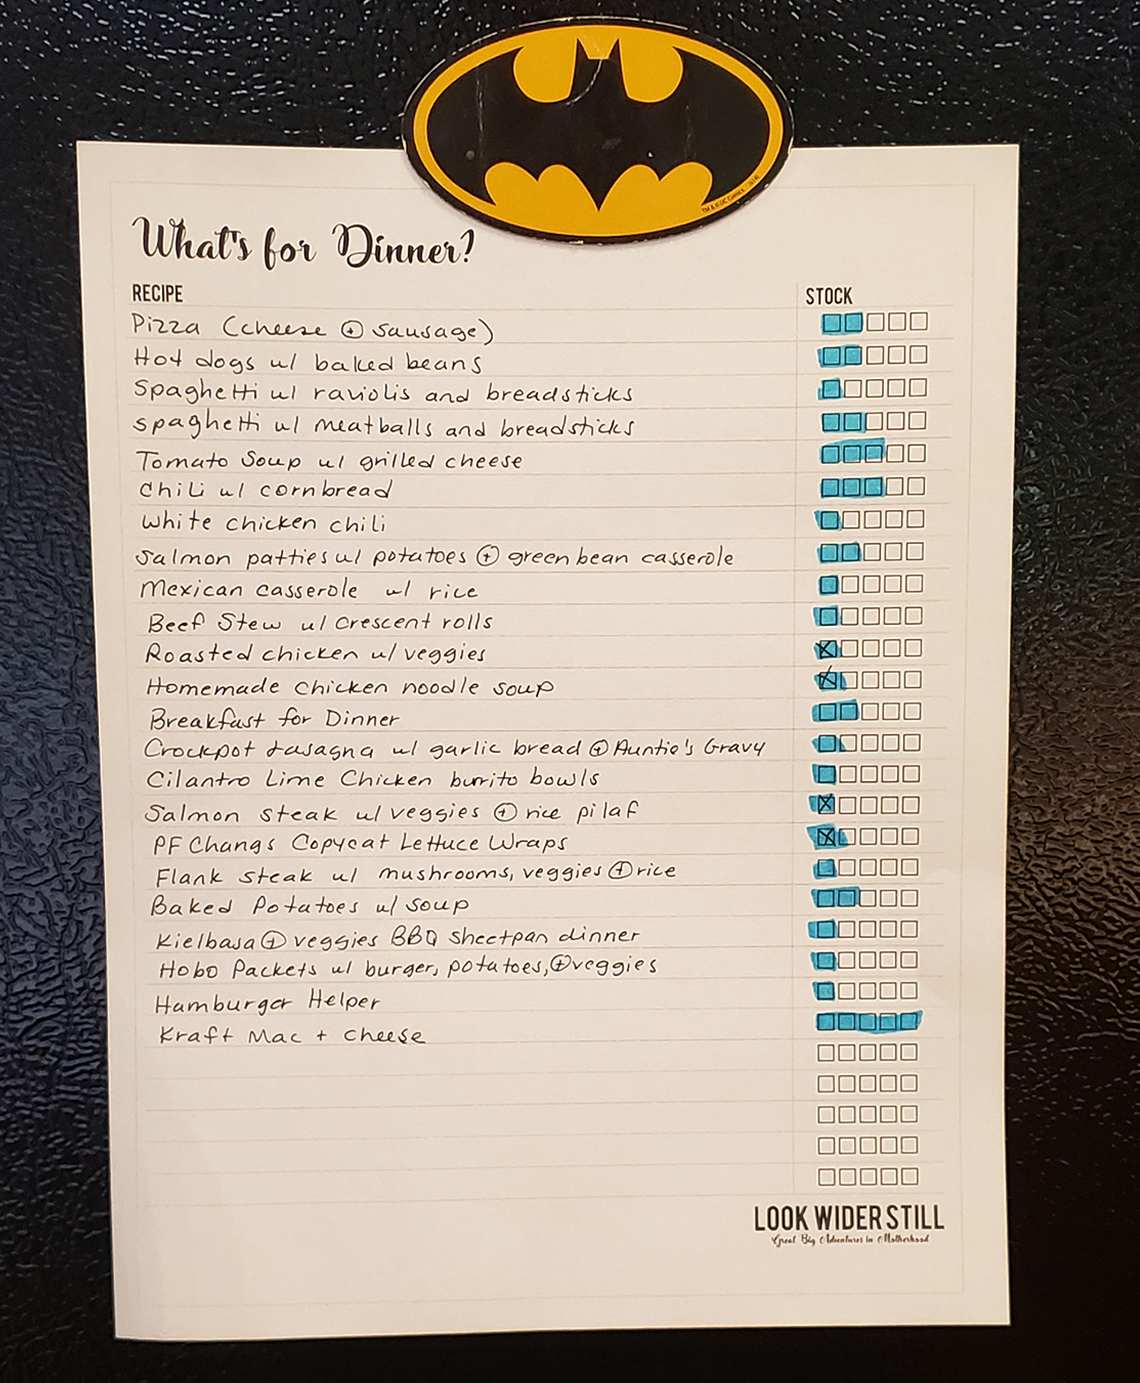 TM & © DC Comics
What's for Dinner?
RECIPE STOCK
Pizza (cheese + sausage)
Hot dogs w/ baked beans
Spaghetti w/ raviolis and breadsticks
spaghetti w/ meatballs and breadsticks
Tomato Soup w/ grilled cheese
Chili w/ cornbread
white chicken chili
Salmon patties w/ potatoes + green bean casserole
Mexican casserole w/ rice
Beef Stew w/ crescent rolls
Roasted chicken w/ veggies
Homemade chicken noodle soup
Breakfast for Dinner
Crockpot Lasagna w/ garlic bread + Auntie's Gravy
Cilantro Lime Chicken burrito bowls
Salmon steak w/ veggies + rice pilaf
PF Changs Copycat Lettuce Wraps
Flank steak w/ mushrooms, veggies + rice
Baked Potatoes w/ soup
Kielbasa + veggies BBQ sheetpan dinner
Hobo Packets w/ burger, potatoes, + veggies
Hamburger Helper
Kraft Mac + cheese
LOOK WIDER STILL
Great Big Adventures in Motherhood